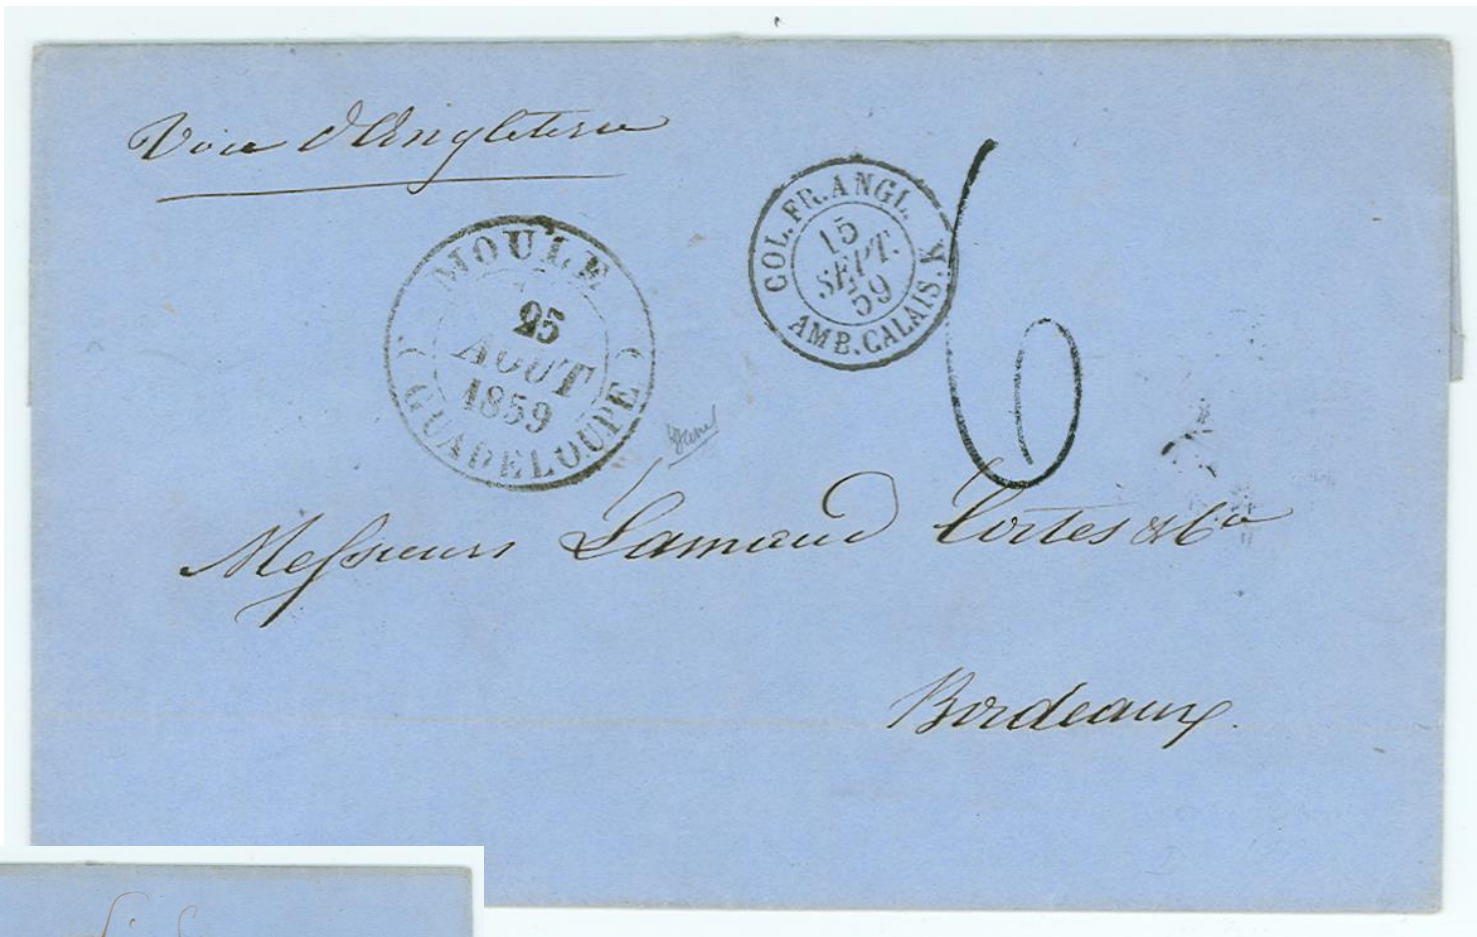 Voie d'Angleterre
MOULE
25
AOUT
1859
(GUADELOUPE)
COL. FR. ANGL.
15
SEPT.
59
AMB. CALAIS. K
6
Messieurs Lamaud Cortès & Cie
Bordeaux.